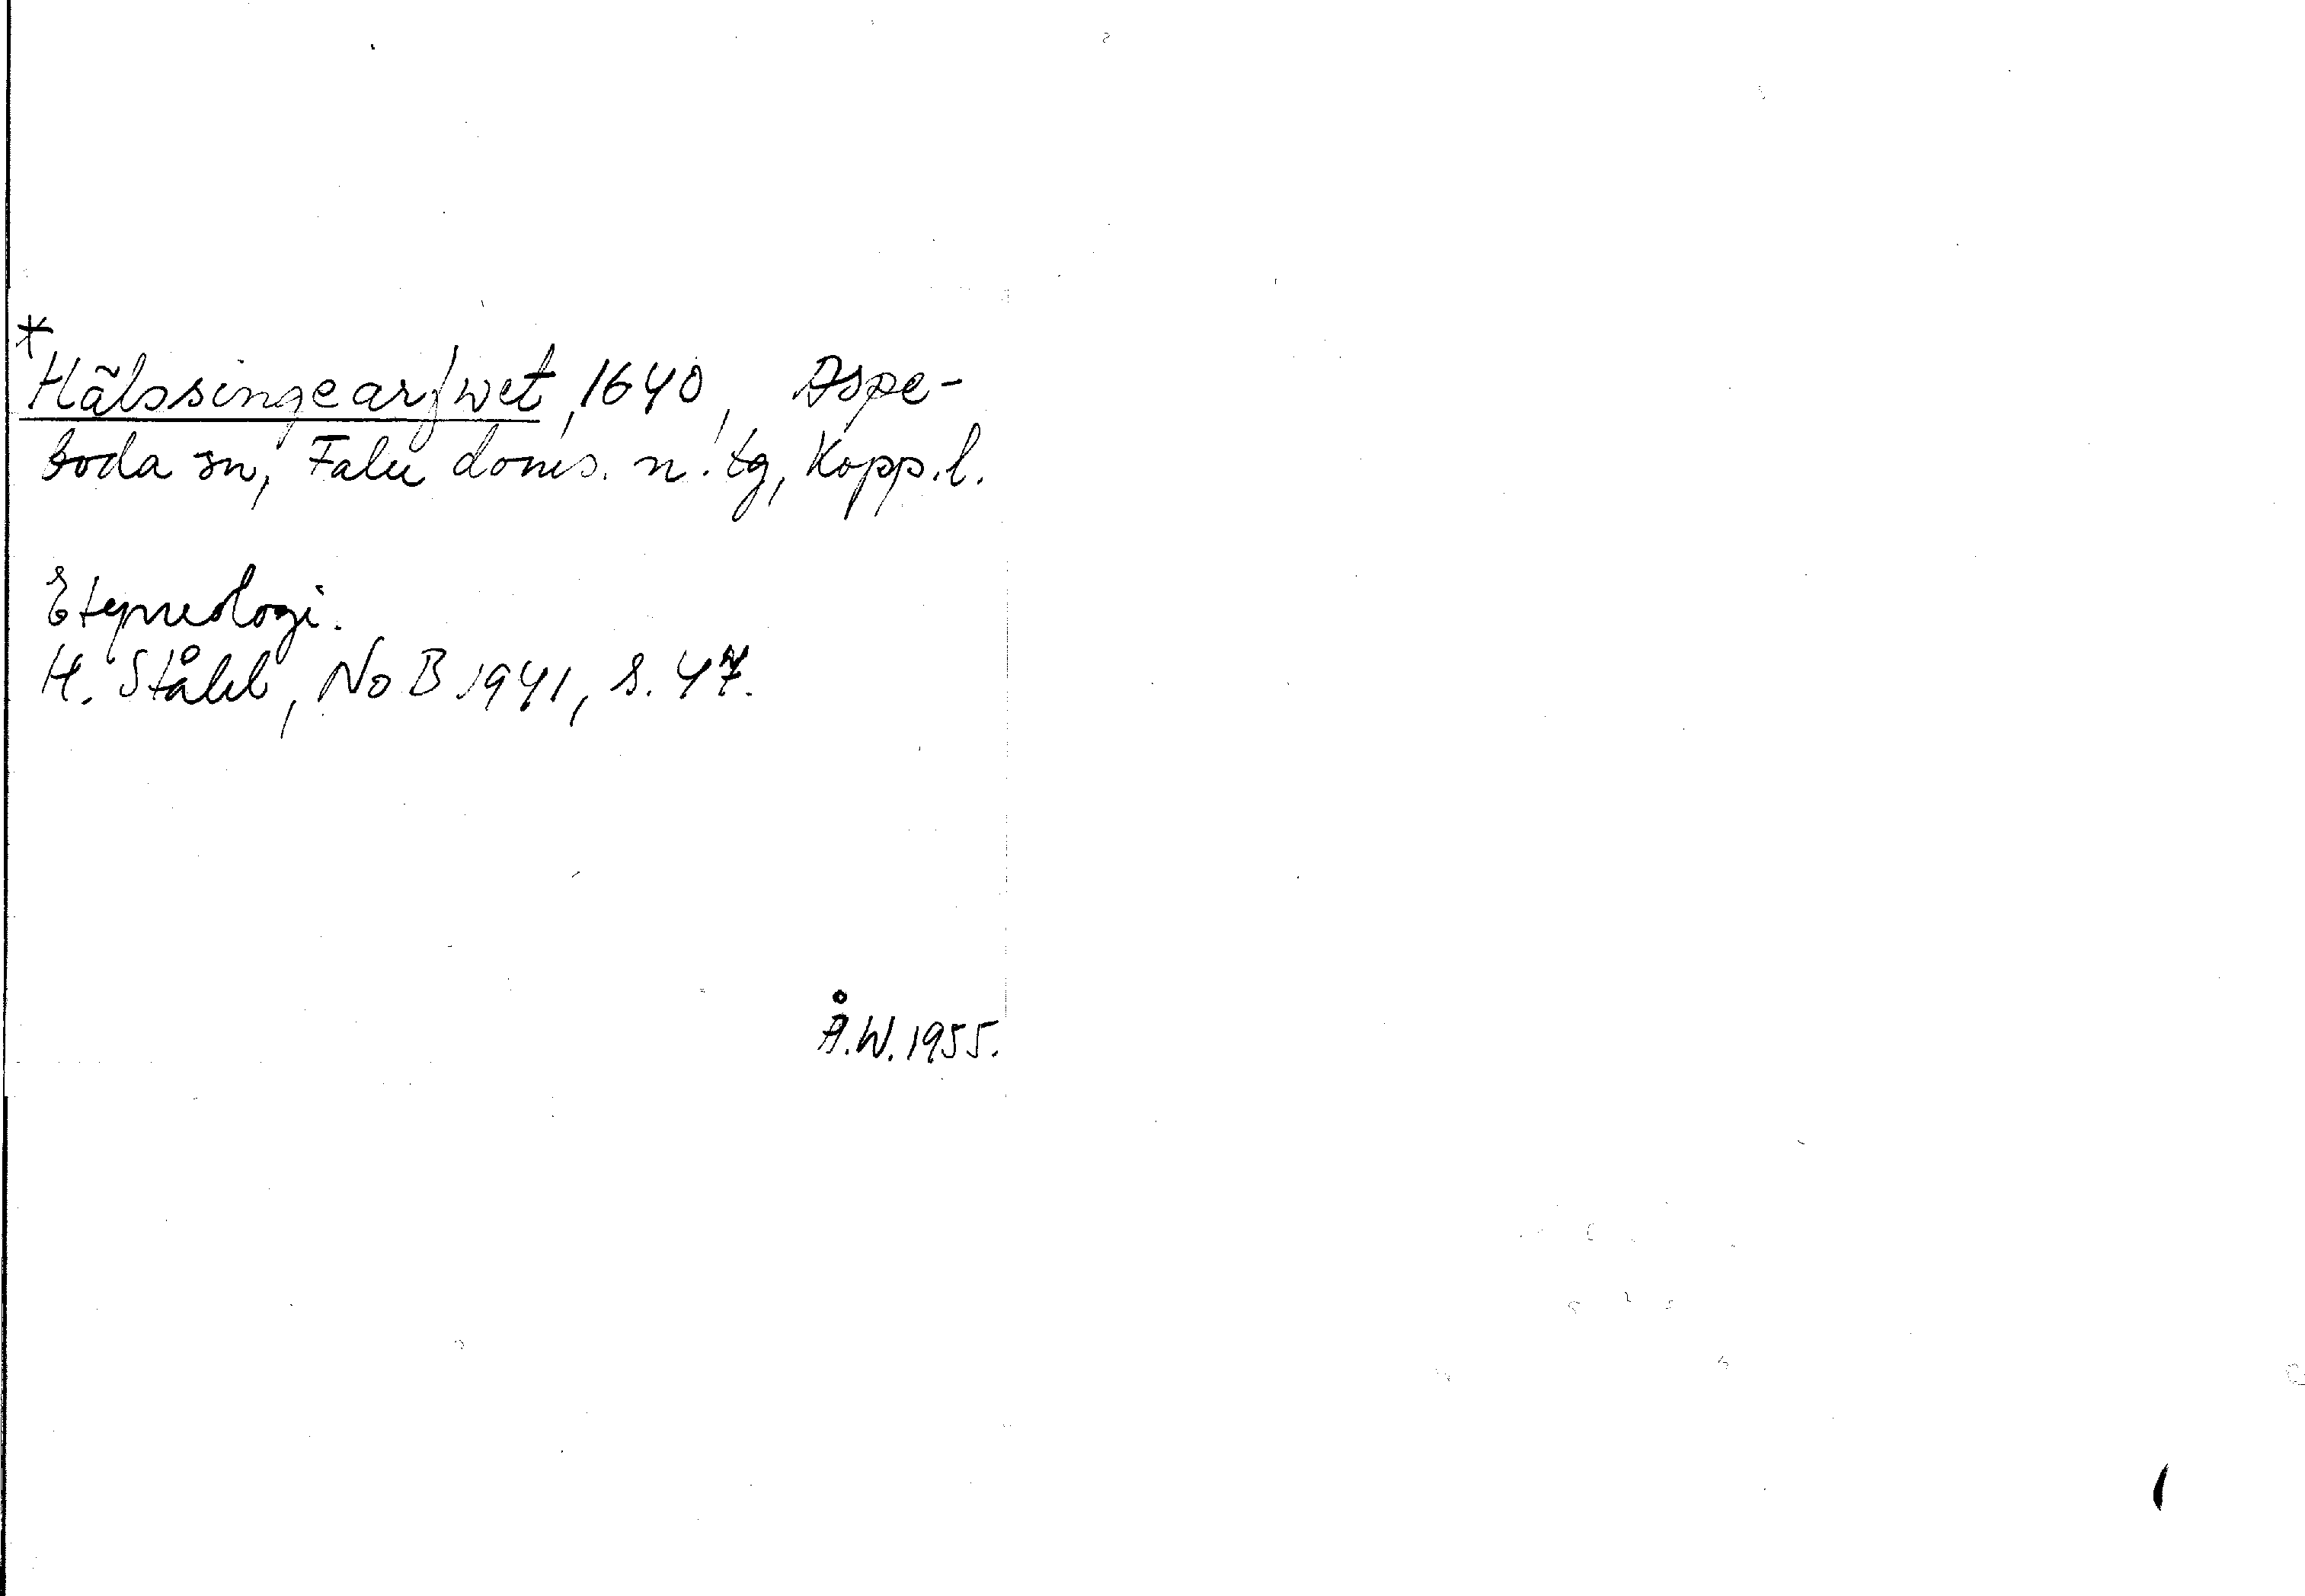 *Hälssingearfwet, 1640, Aspe-
boda sn, Falu doms. n. tg, Kopp. l.
Etymologi.
H. Ståhl, NoB 1941, s. 47.
Å.W. 1955.